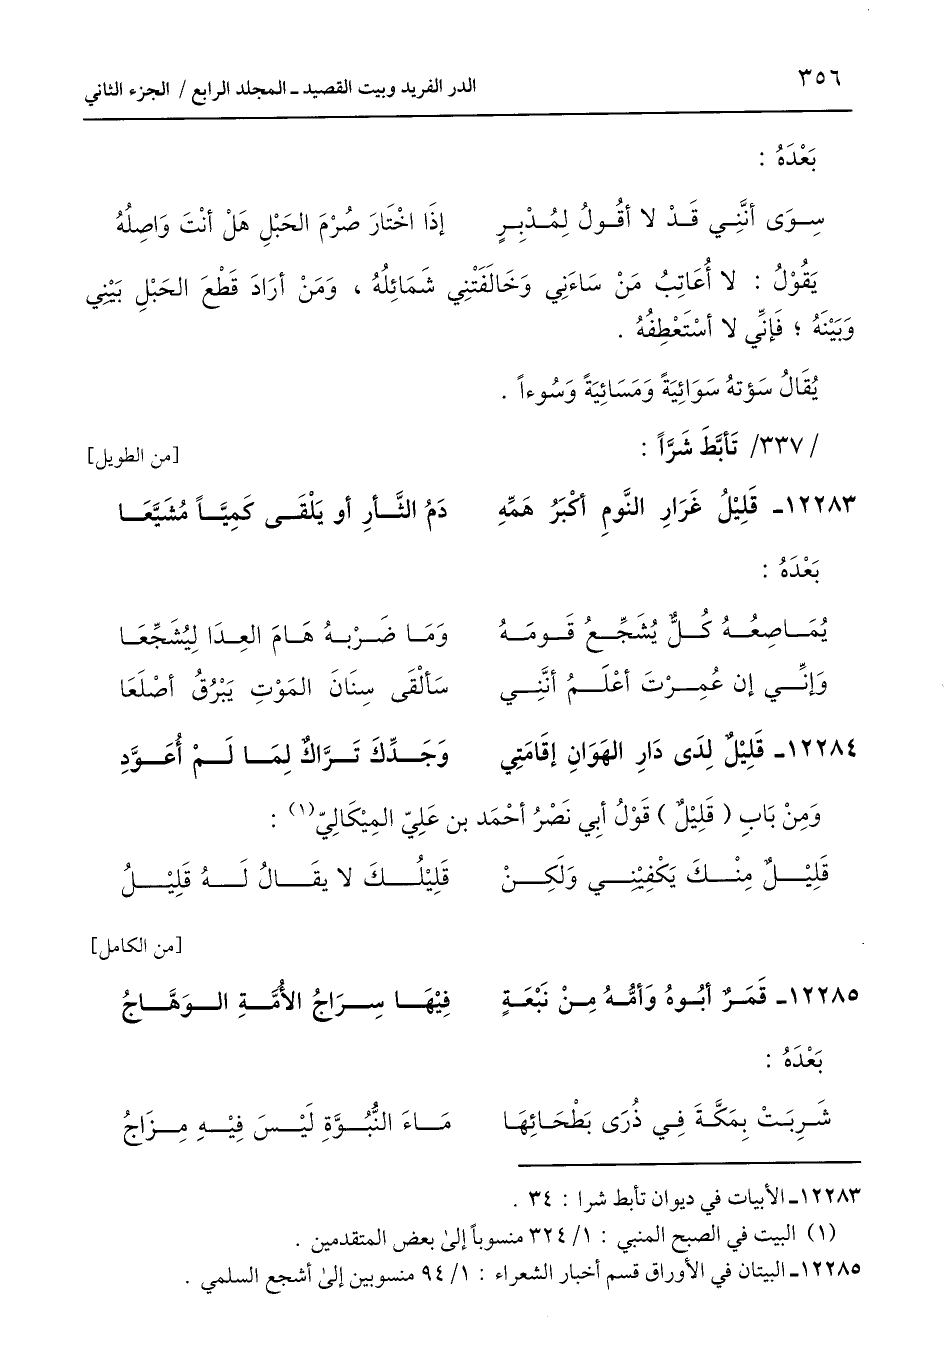 ٣٥٦ الدر الفريد وبيت القصيد ـ المجلد الرابع / الجزء الثاني
بَعْدَهُ :
سِوَى أنَّنِي قَدْ لا أقُولُ لِمُدْبِرٍ إذَا اخْتَارَ صُرْمَ الحَبْلِ هَلْ أنْتَ وَاصِلُهُ
يَقُوْلُ : لا أُعَاتِبُ مَنْ سَاءَنِي وَخَالَفَتْنِي شَمَائِلُهُ ، وَمَنْ أرَادَ قَطْعَ الحَبْلِ بَيْنِي
وَبَيْنَهُ ؛ فَإنِّي لا أسْتَعْطِفُهُ .
يُقَالُ سَؤتهُ سَوَائِيَةً وَمَسَائِيَةً وَسُوءاً .
/٣٣٧/ تَأبَّطَ شَرَّاً : [من الطويل]
١٢٢٨٣ـ قَلِيْلُ غَرَارِ النَّومِ أكْبَرُ هَمِّهِ دَمُ الثَّـأرِ أو يَلْقَـى كَمِيَّـاً مُشَيَّعَـا
بَعْدَهُ :
يُمَـاصِعُـهُ كُـلٌّ يُشَجِّـعُ قَـومَـهُ وَمَـا ضَـرْبـهُ هَـامَ العِـدَا لِيُشَجَّعَـا
وَإنِّـي إن عُمِـرْتَ أعْلَـمُ أنَّنِـي سَألْقَى سِنَانَ المَوْتِ يَبْرُقُ أصْلَعَا
١٢٢٨٤ـ قَلِيْلٌ لِدَى دَارِ الهَوَانِ إقَامَتِي وَجَـدِّكَ تَـرَّاكٌ لِمَـا لَـمْ أُعَـوَّدِ
وَمِنْ بَابِ ( قَلِيْلٌ ) قَوْلُ أبِي نَصْرُ أحْمَد بن عَلِيّ المِيْكَالِيّ(١) :
قَلِيْـلٌ مِنْـكَ يَكْفِيْنِـي وَلَكِـنْ قَلِيْلُـكَ لا يقَـالُ لَـهُ قَلِيْـلُ
[من الكامل]
١٢٢٨٥ـ قَمَرٌ أبُـوهُ وَأمُّـهُ مِـنْ نَبْعَـةٍ فِيْهَـا سِـرَاجُ الأُمَّـةِ الـوَهَّـاجُ
بَعْدَهُ :
شَرِبَتْ بِمَكَّةَ فِـي ذُرَى بَطْحَـائِهَـا مَـاءَ النُّبُـوَّةِ لَيْـسَ فِيْـهِ مِـزَاجُ
١٢٢٨٣ـ الأبيات في ديوان تأبط شرا : ٣٤ .
(١) البيت في الصبح المنبي : ١/ ٣٢٤ منسوباً إلىٰ بعض المتقدمين .
١٢٢٨٥ـ البيتان في الأوراق قسم أخبار الشعراء : ١/ ٩٤ منسوبين إلىٰ أشجع السلمي .